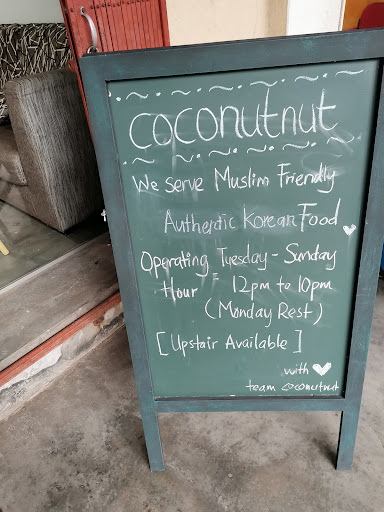 coconutnut
We serve Muslim Friendly
Authentic Korean Food
Operating Tuesday - Sunday
Hour = 12pm to 10pm
(Monday Rest)
[Upstair Available]
with
team coconutnut